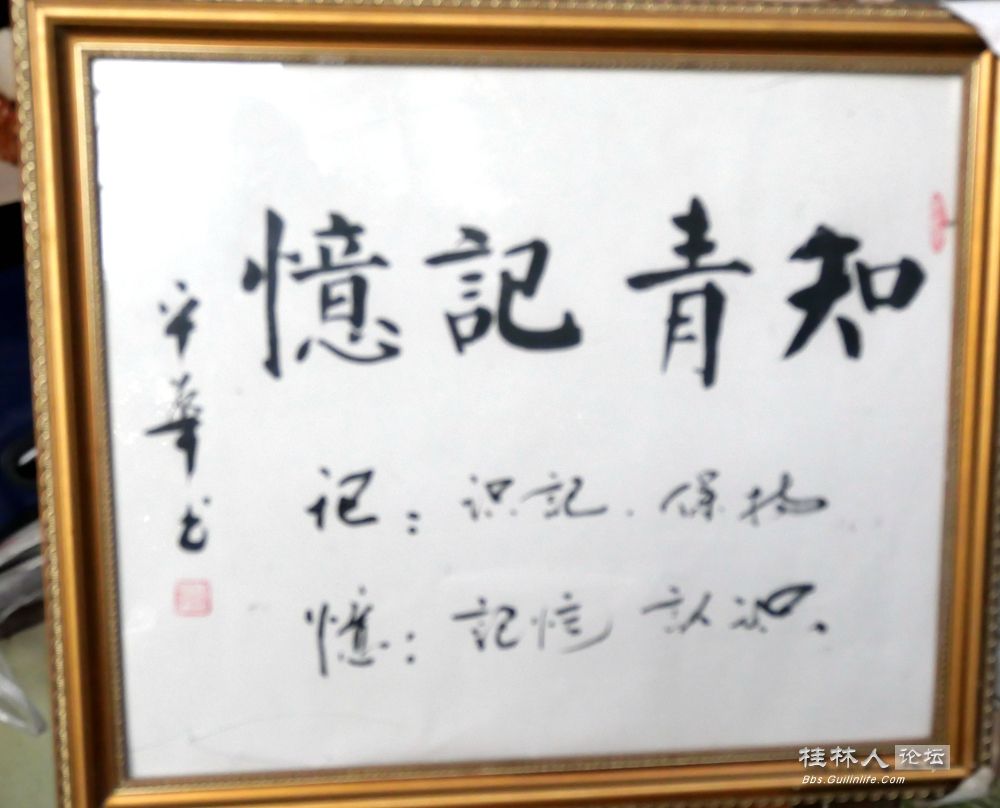 知青記憶
记：识記．保持
憶：記憶 认识。
華书
桂林人论坛
Bbs.Guilinlife.Com